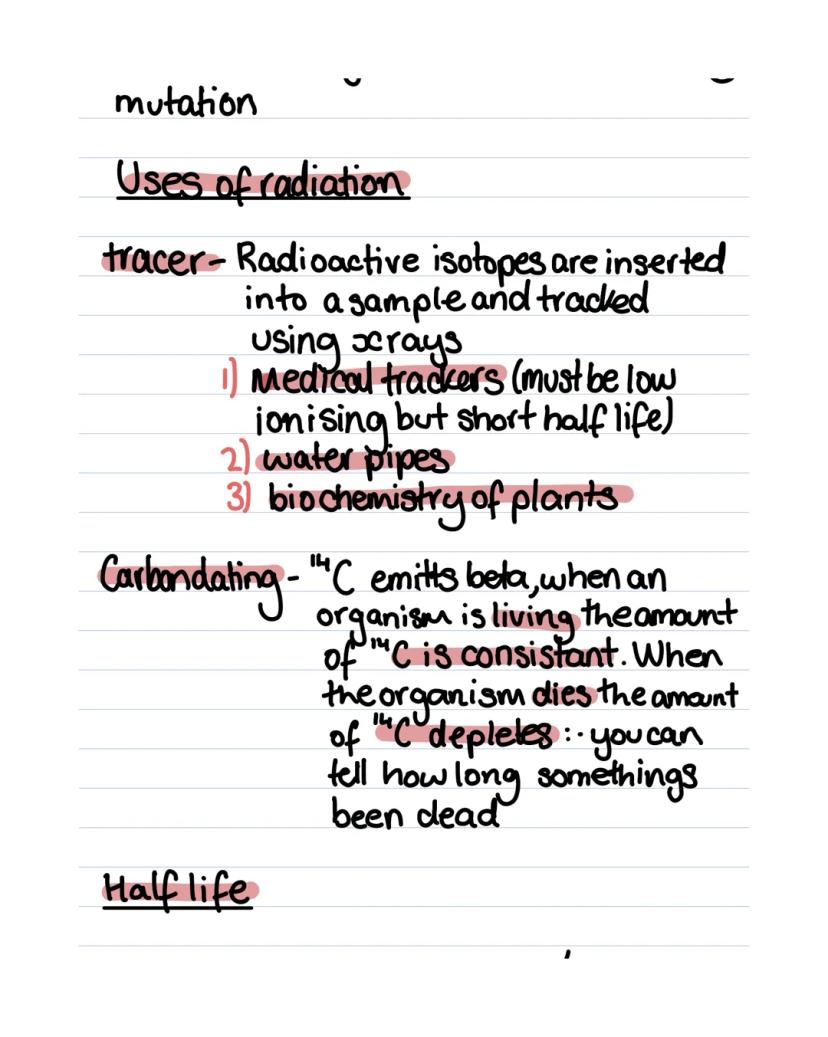 mutation
Uses of radiation
tracer - Radioactive isotopes are inserted
into a sample and tracked
using x rays
1) Medical trackers (must be low
ionising but short half life)
2) water pipes
3) biochemistry of plants
Carbondating - ¹⁴C emitts beta, when an
organism is living the amount
of ¹⁴C is consistant. When
the organism dies the amount
of ¹⁴C depletes ∴ you can
tell how long somethings
been dead
Half life